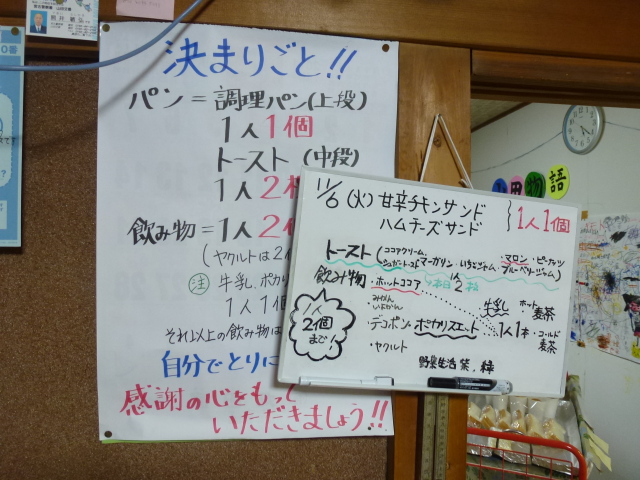 決まりごと!!
パン=調理パン(上段)
1人1個
トースト(中段)
1人2枚
飲み物=1人2
(ヤクルトは2
注 牛乳、ポカリ
1人1個
それ以上の飲み物は
自分でとりに
感謝の心をもって
いただきましょう!!
11/6(火)甘辛チキンサンド
ハムチーズサンド
1人1個
トースト(ココアクリーム、
シュガートースト マーガリン・いちごジャム・マロン・ピーナッツ
ブルーベリージャム)
1人2枚
飲み物・ホットココア
牛乳
・ホット麦茶
1人2個まで!
みかん
・デコポン
ポカリスエット
1人1本
・コールド麦茶
・ヤクルト
野菜生活 紫、緑
物語